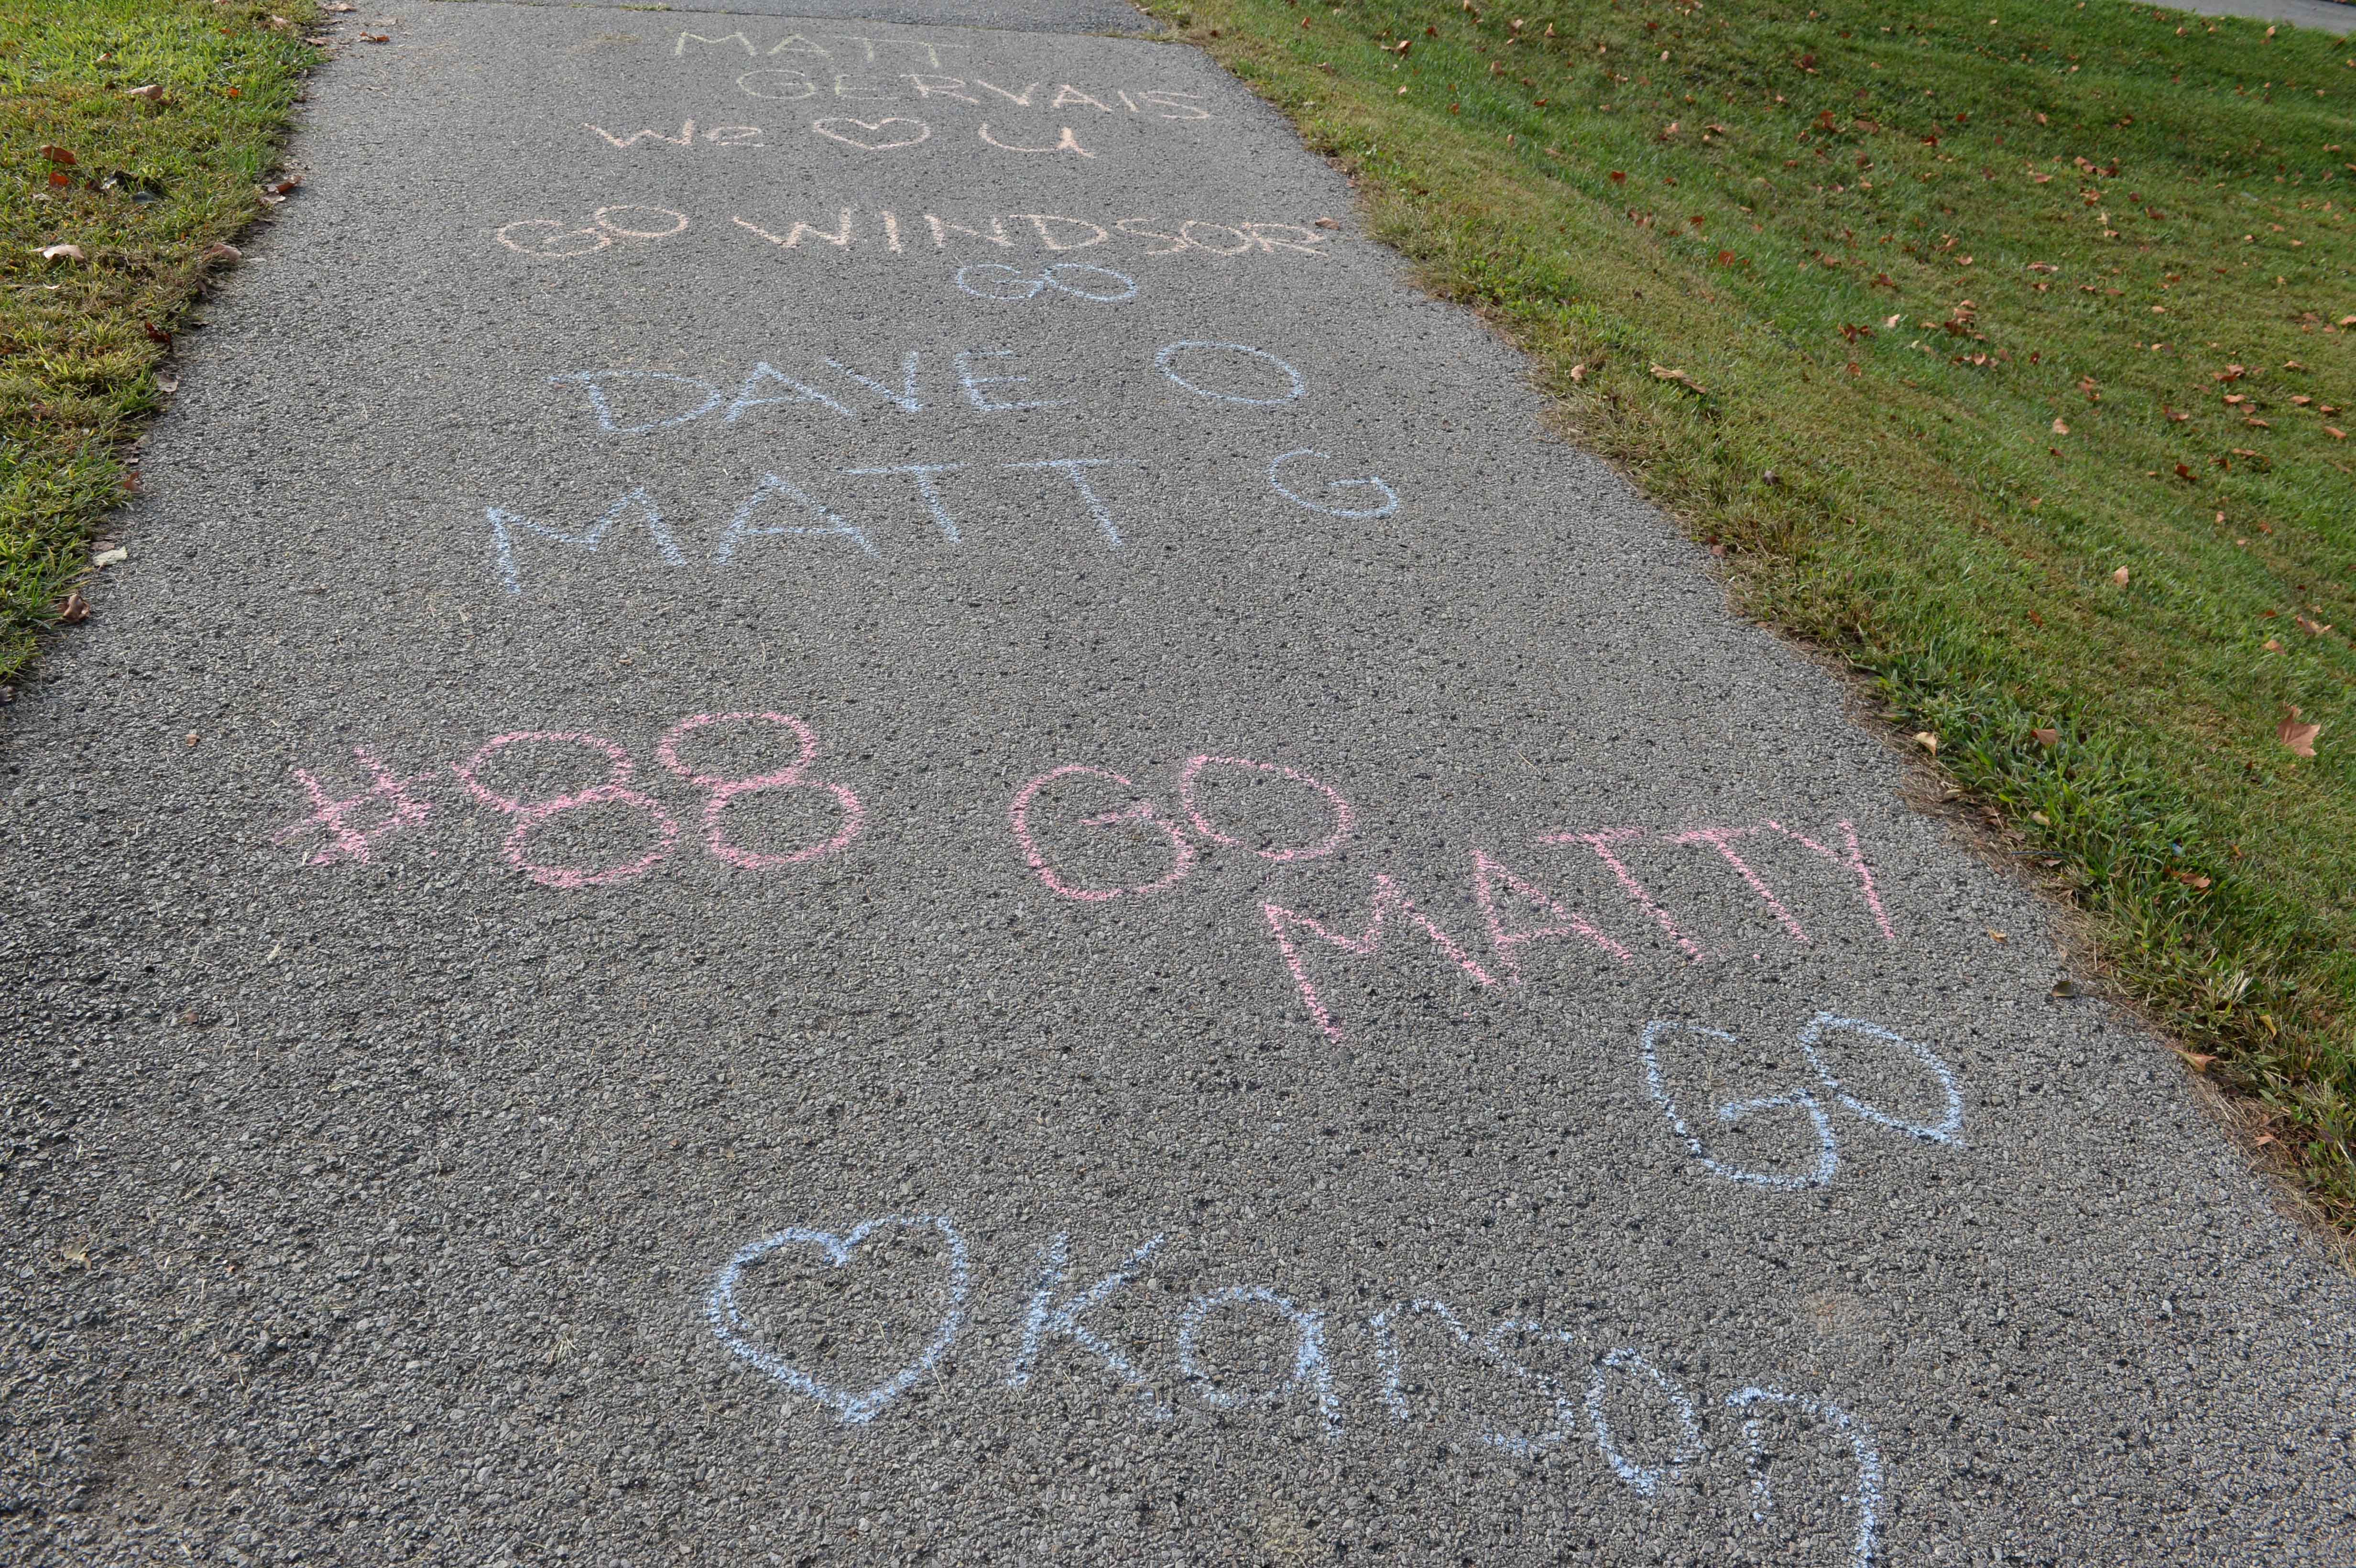 MATT
GERVAIS
We ♡ U
GO WINDSOR
GO
DAVE O
MATT G
#88 GO
MATTY
GO
♡ Karson